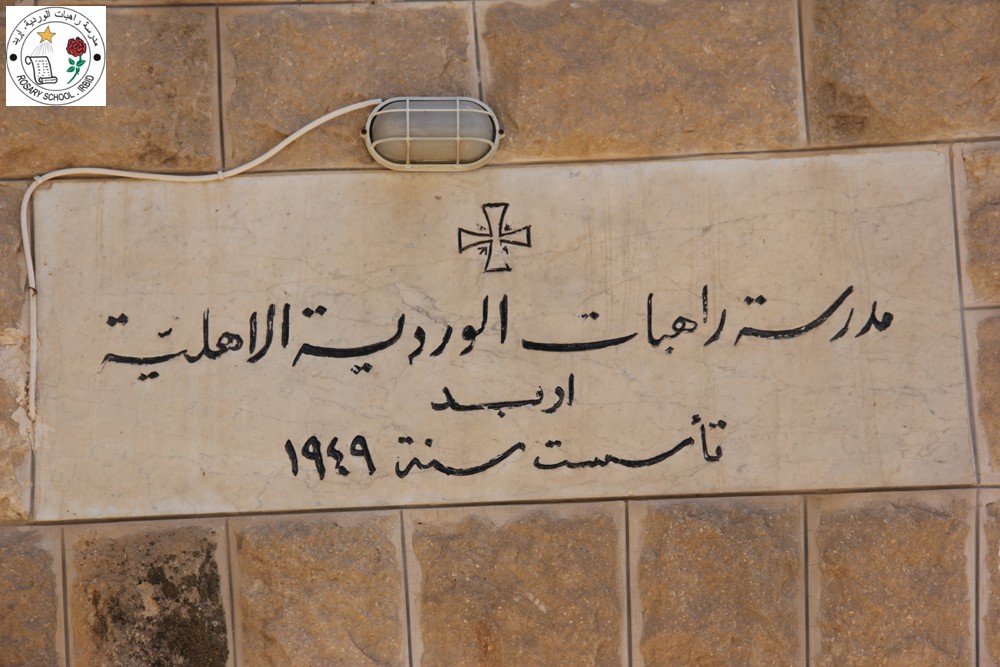 مدرسة راهبات الوردية . اربد
ROSARY SCHOOL . IRBID
مدرسة راهبات الوردية الاهليّة
اربد
تأسست سنة ١٩٤٩